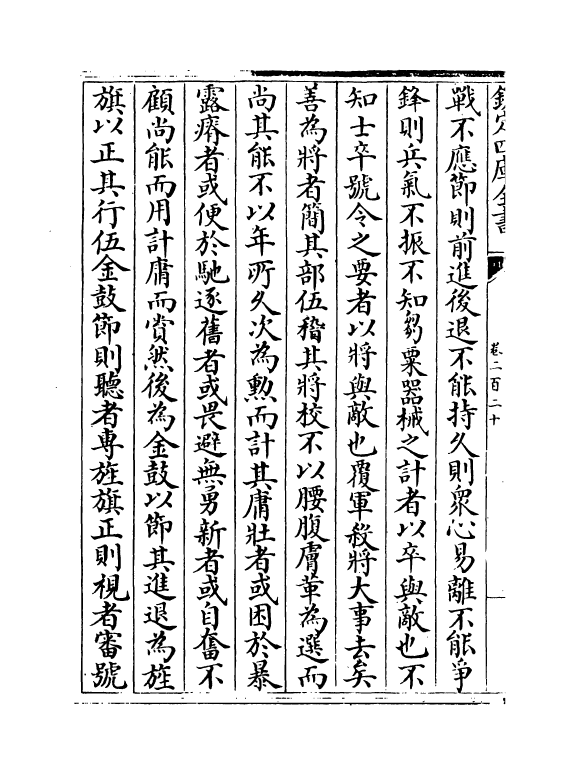 欽定四庫全書
卷二百二十
戰不應節則前進後退不能持久則衆心易離不能爭
鋒則兵氣不振不知芻粟器械之計者以卒與敵也不
知士卒號令之要者以將與敵也覆軍殺將大事去矣
善為將者簡其部伍稽其將校不以腰腹膚革為選而
尚其能不以年所久次為勲而計其庸壯者或困於暴
露瘠者或便於馳逐舊者或畏避無勇新者或自奮不
顧尚能而用計庸而賞然後為金鼓以節其進退為旌
旗以正其行伍金鼓節則聽者専旌旗正則視者審號